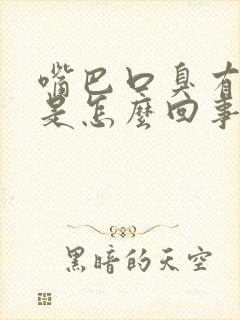 嘴巴口臭有
是怎麼回事
黑暗的天空